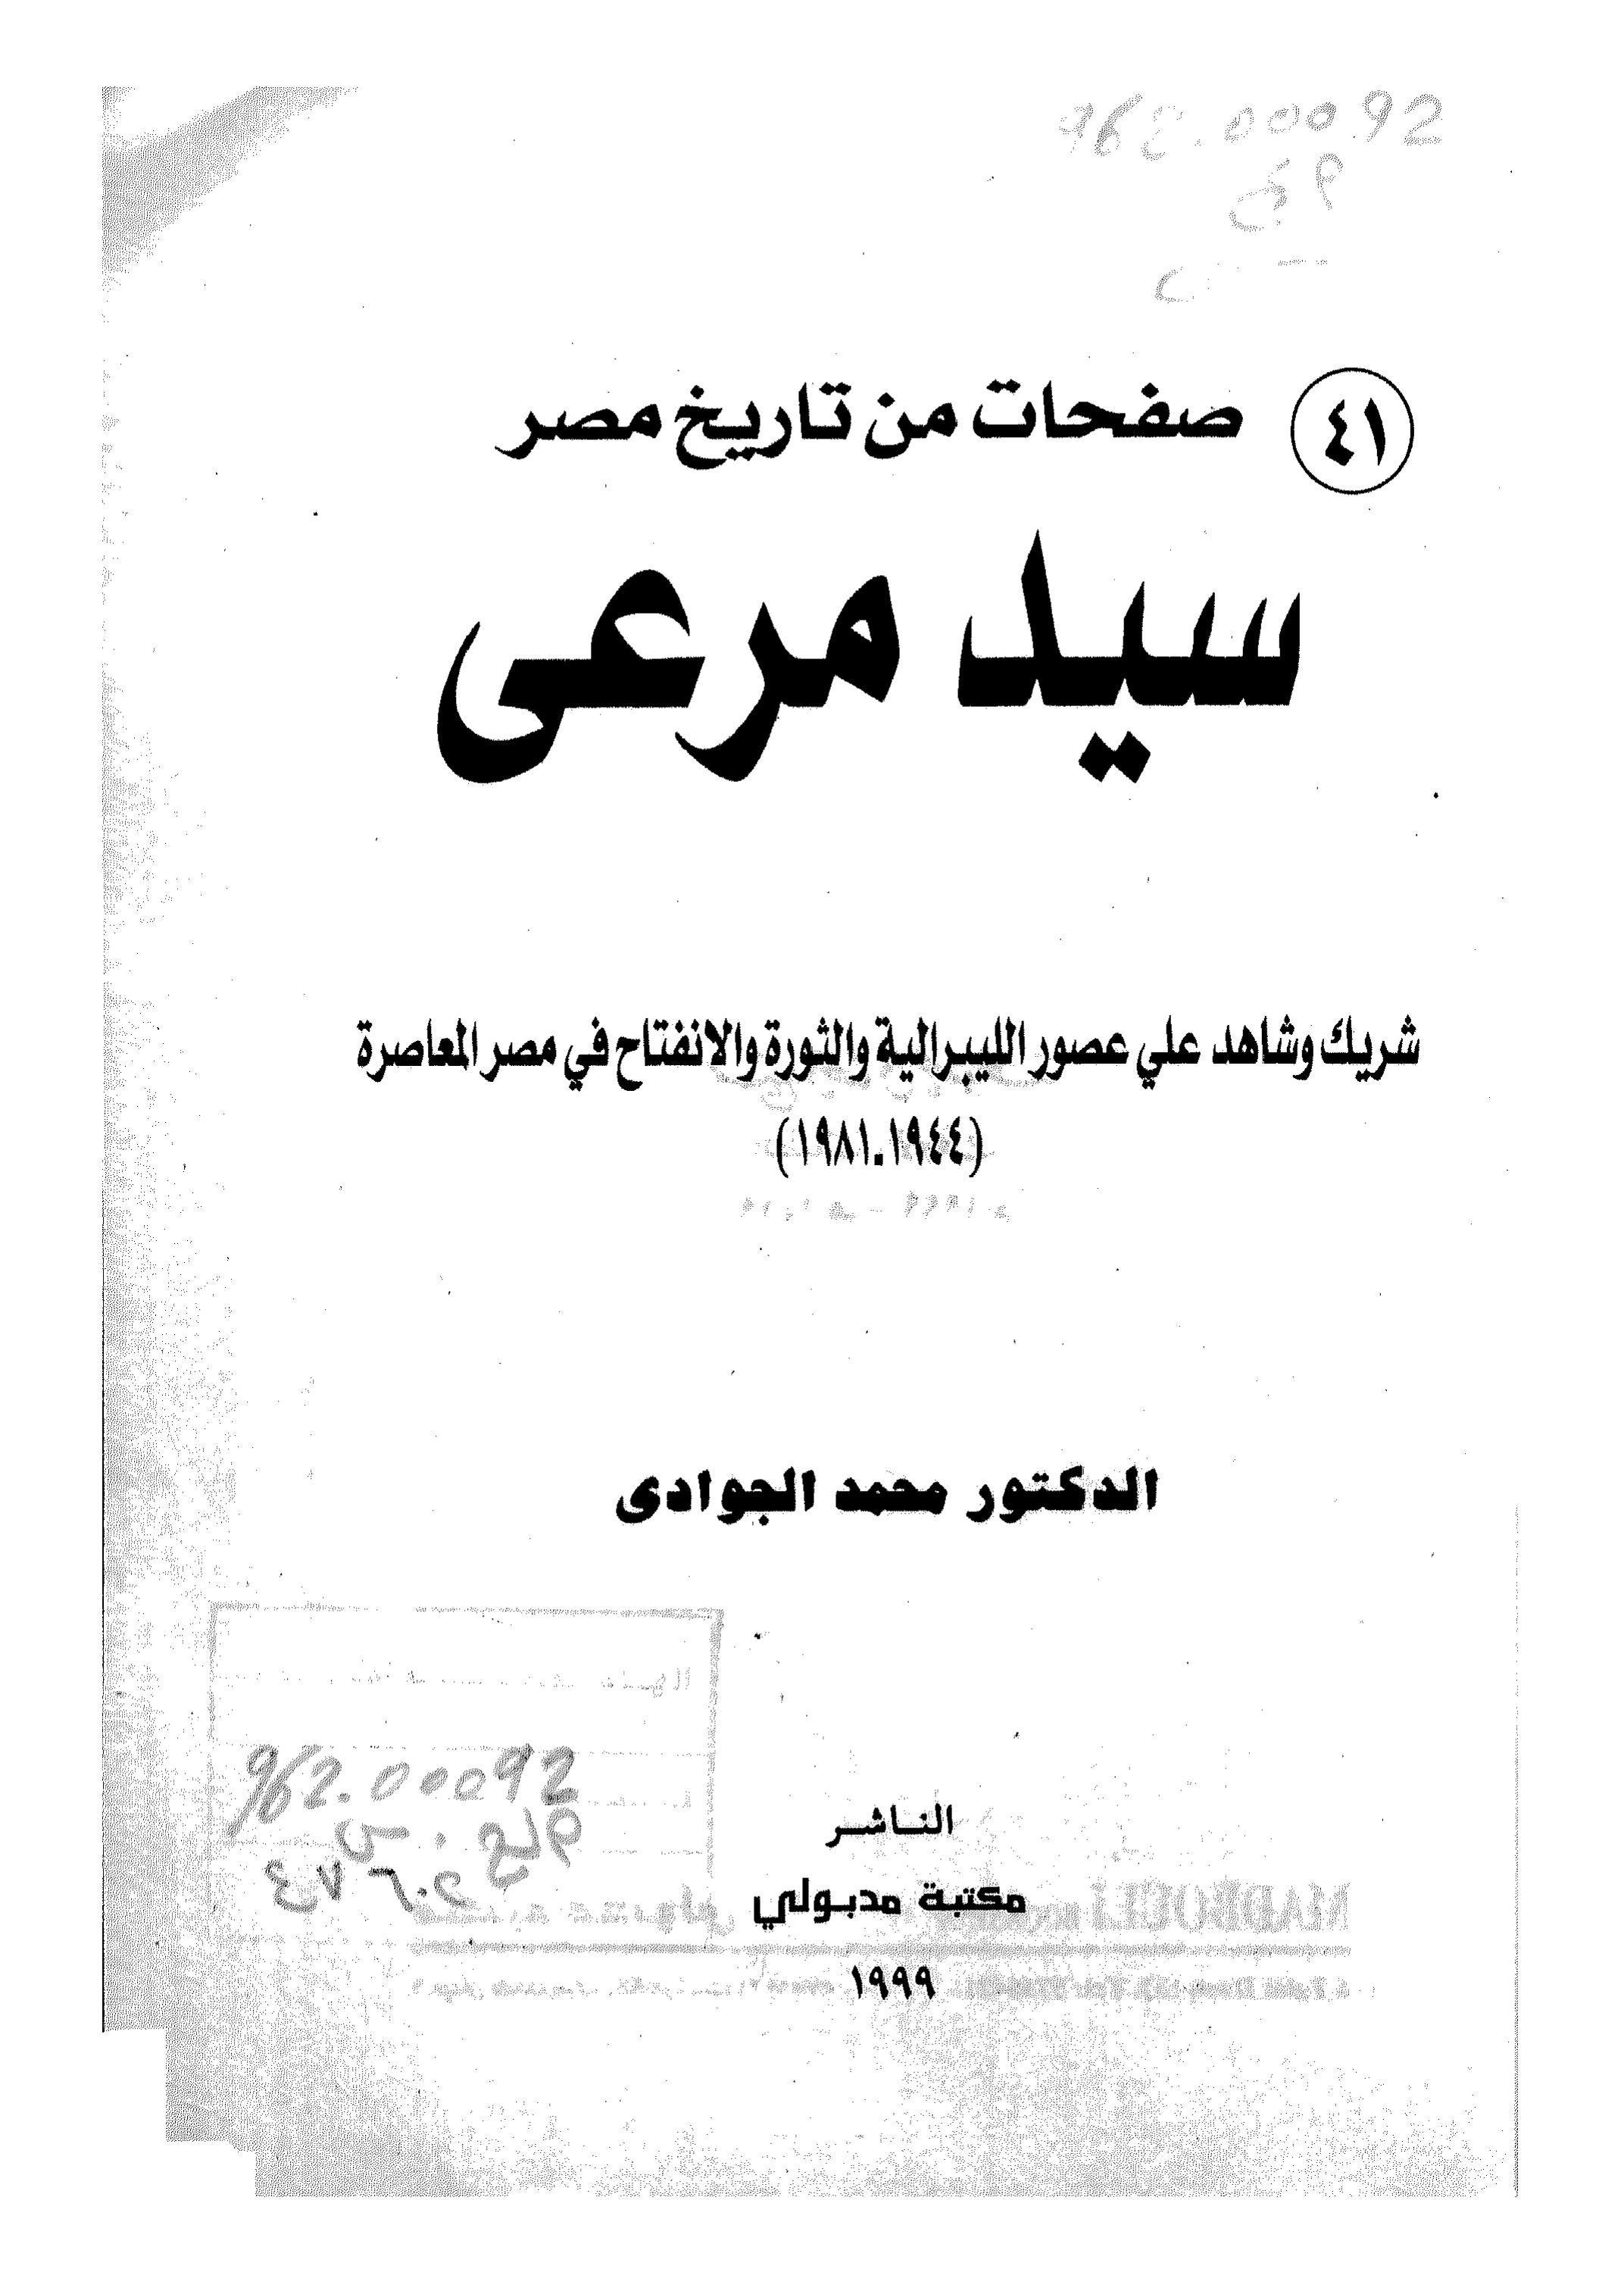 962.00092
٤١ صفحات من تاريخ مصر
سيد مرعى
شريك وشاهد علي عصور الليبرالية والثورة والانفتاح في مصر المعاصرة
(١٩٤٤ـ١٩٨١)
الدكتور محمد الجوادى
962.00092
الناشر
مكتبة مدبولي
١٩٩٩